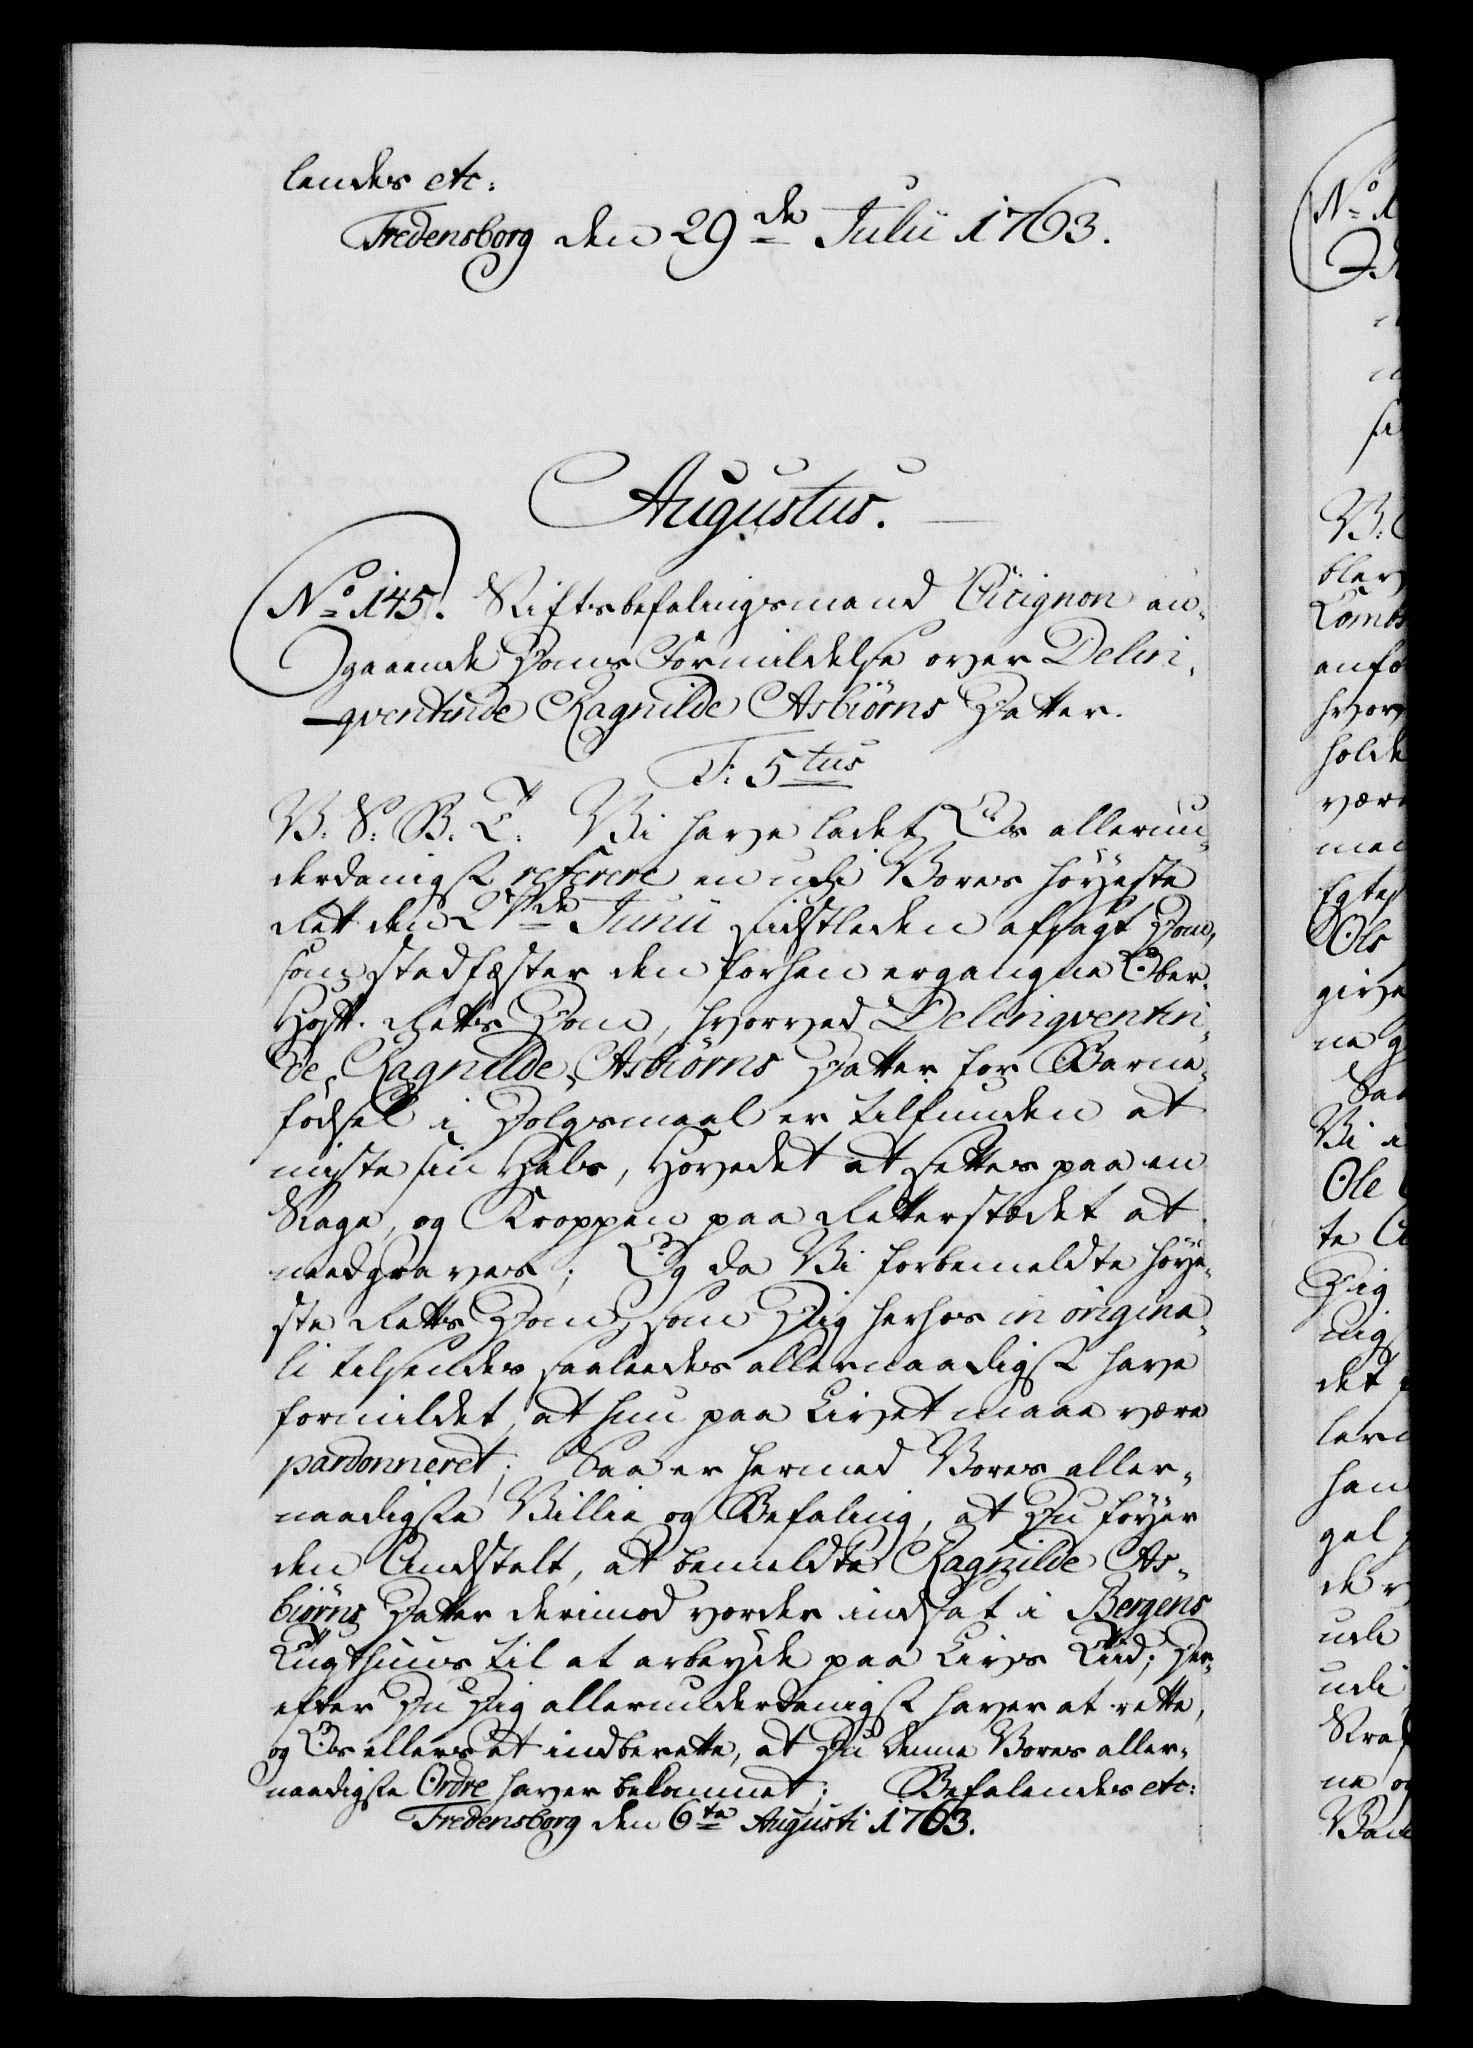 lendes etc:
Fredensborg den 29de Julii 1763.
Augustus.
No 145. Stiftsbefalingsmand Cicignon an-
gaaende Doms Formildelse over Delin-
qventinde Ragnilde Asbiörns Datter.
F: 5tus
V. S: B. T: Vi have ladet Os allerun-
derdanigst referere en udi Vores Höyeste
Rett den 27de Junii sidstleden afsagt Dom,
som stadfæster den forhen ergangne Ober-
Hoff-Retts Dom, hvorved Delinqventin-
de Ragnilde Asbiörns Datter for Barne-
födsel i Dolgsmaal er tilfunden at
miste sin Hals, Hovedet at settes paa en
Stage, og Kroppen paa Retterstædet at
needgraves; Og da Vi forbemeldte Höye-
ste Retts Dom, som Dig herhos in origina-
li tilsendes saaledes allernaadigst have
formildet, at hun paa Livet maae være
pardonneret; Saa er hermed Vores aller-
naadigste Villie og Befaling, at Du föyer
den Andstalt, at bemeldte Ragnilde As-
biörns Datter derimod vorder indsat i Bergens
Tugthuus til at arbeyde paa Livs Tiid; Der-
efter Du Dig allerunderdanigst haver at rette,
og Os ellers at indberette, at Du denne Vores aller-
naadigste Ordre haver bekommet; Befalendes etc:
Fredensborg den 6te Augusti 1763.